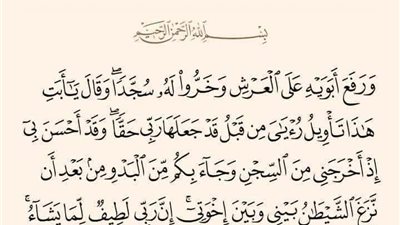 بِسْمِ ٱللَّهِ ٱلرَّحْمَٰنِ ٱلرَّحِيمِ
وَرَفَعَ أَبَوَيْهِ عَلَى ٱلْعَرْشِ وَخَرُّوا۟ لَهُۥ سُجَّدًۭا ۖ وَقَالَ يَٰٓأَبَتِ
هَٰذَا تَأْوِيلُ رُءْيَٰىَ مِن قَبْلُ قَدْ جَعَلَهَا رَبِّى حَقًّۭا ۖ وَقَدْ أَحْسَنَ بِىٓ
إِذْ أَخْرَجَنِى مِنَ ٱلسِّجْنِ وَجَآءَ بِكُم مِّنَ ٱلْبَدْوِ مِنۢ بَعْدِ أَن
نَّزَغَ ٱلشَّيْطَٰنُ بَيْنِى وَبَيْنَ إِخْوَتِىٓ ۚ إِنَّ رَبِّى لَطِيفٌۭ لِّمَا يَشَآءُ ۚ